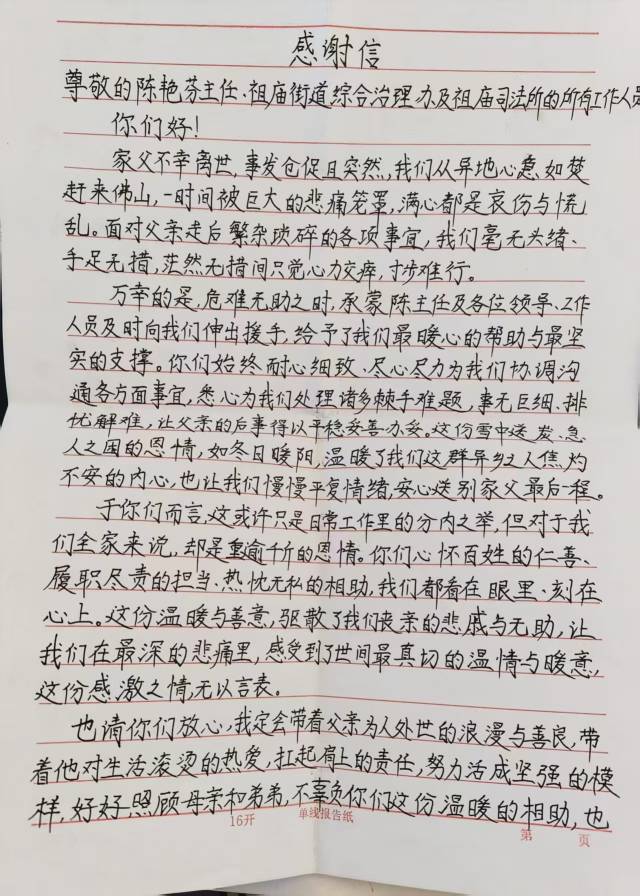 感谢信
尊敬的陈艳芬主任、祖庙街道综合治理办及祖庙司法所的所有工作人员
你们好！
家父不幸离世，事发仓促且突然，我们从异地心急如焚
赶来佛山，一时间被巨大的悲痛笼罩，满心都是哀伤与慌
乱。面对父亲走后繁杂琐碎的各项事宜，我们毫无头绪、
手足无措，茫然无措间只觉心力交瘁，寸步难行。
万幸的是，危难无助之时，承蒙陈主任及各位领导、工作
人员及时向我们伸出援手，给予了我们最暖心的帮助与最坚
实的支撑。你们始终耐心细致、尽心尽力为我们协调沟
通各方面事宜，悉心为我们处理诸多棘手难题，事无巨细、排
忧解难，让父亲的后事得以平稳妥善办妥。这份雪中送炭、急
人之困的恩情，如冬日暖阳，温暖了我们这群异乡之人焦灼
不安的内心，也让我们慢慢平复情绪，安心送别家父最后一程。
于你们而言，这或许只是日常工作里的分内之举，但对于我
们全家来说，却是重逾千斤的恩情。你们心怀百姓的仁善、
履职尽责的担当、热忱无私的相助，我们都看在眼里、刻在
心上。这份温暖与善意，驱散了我们丧亲的悲戚与无助，让
我们在最深的悲痛里，感受到了世间最真切的温情与暖意，
这份感激之情，无以言表。
也请你们放心，我定会带着父亲为人处世的浪漫与善良，带
着他对生活滚烫的热爱，扛起肩上的责任，努力活成坚强的模
样，好好照顾母亲和弟弟，不辜负你们这份温暖的相助，也
16开 单线报告纸 第 页